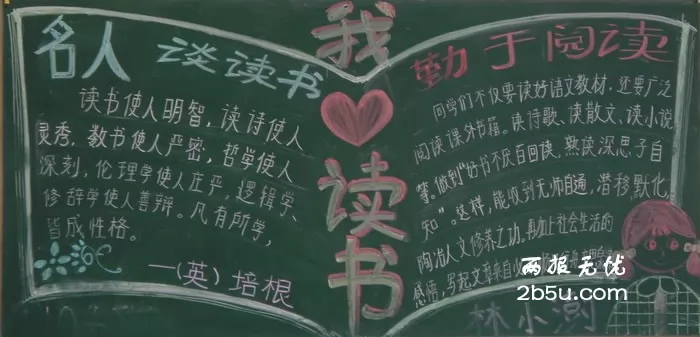 名人谈读书
读书使人明智，读诗使人
灵秀，数书使人严密，哲学使人
深刻，伦理学使人庄严，逻辑学、
修辞学使人善辩。凡有所学，
皆成性格。
—(英)培根
我
读
书
勤于阅读
同学们不仅要读好语文教材，还要广泛
阅读课外书籍。读诗歌、读散文、读小说
等。做到“好书不厌百回读，熟读深思子自
知”。这样，能收到无师自通，潜移默化，
陶冶人文修养之功。再加上社会生活的
感悟，写起文章来自
林小测
两报无忧
2b5u.com